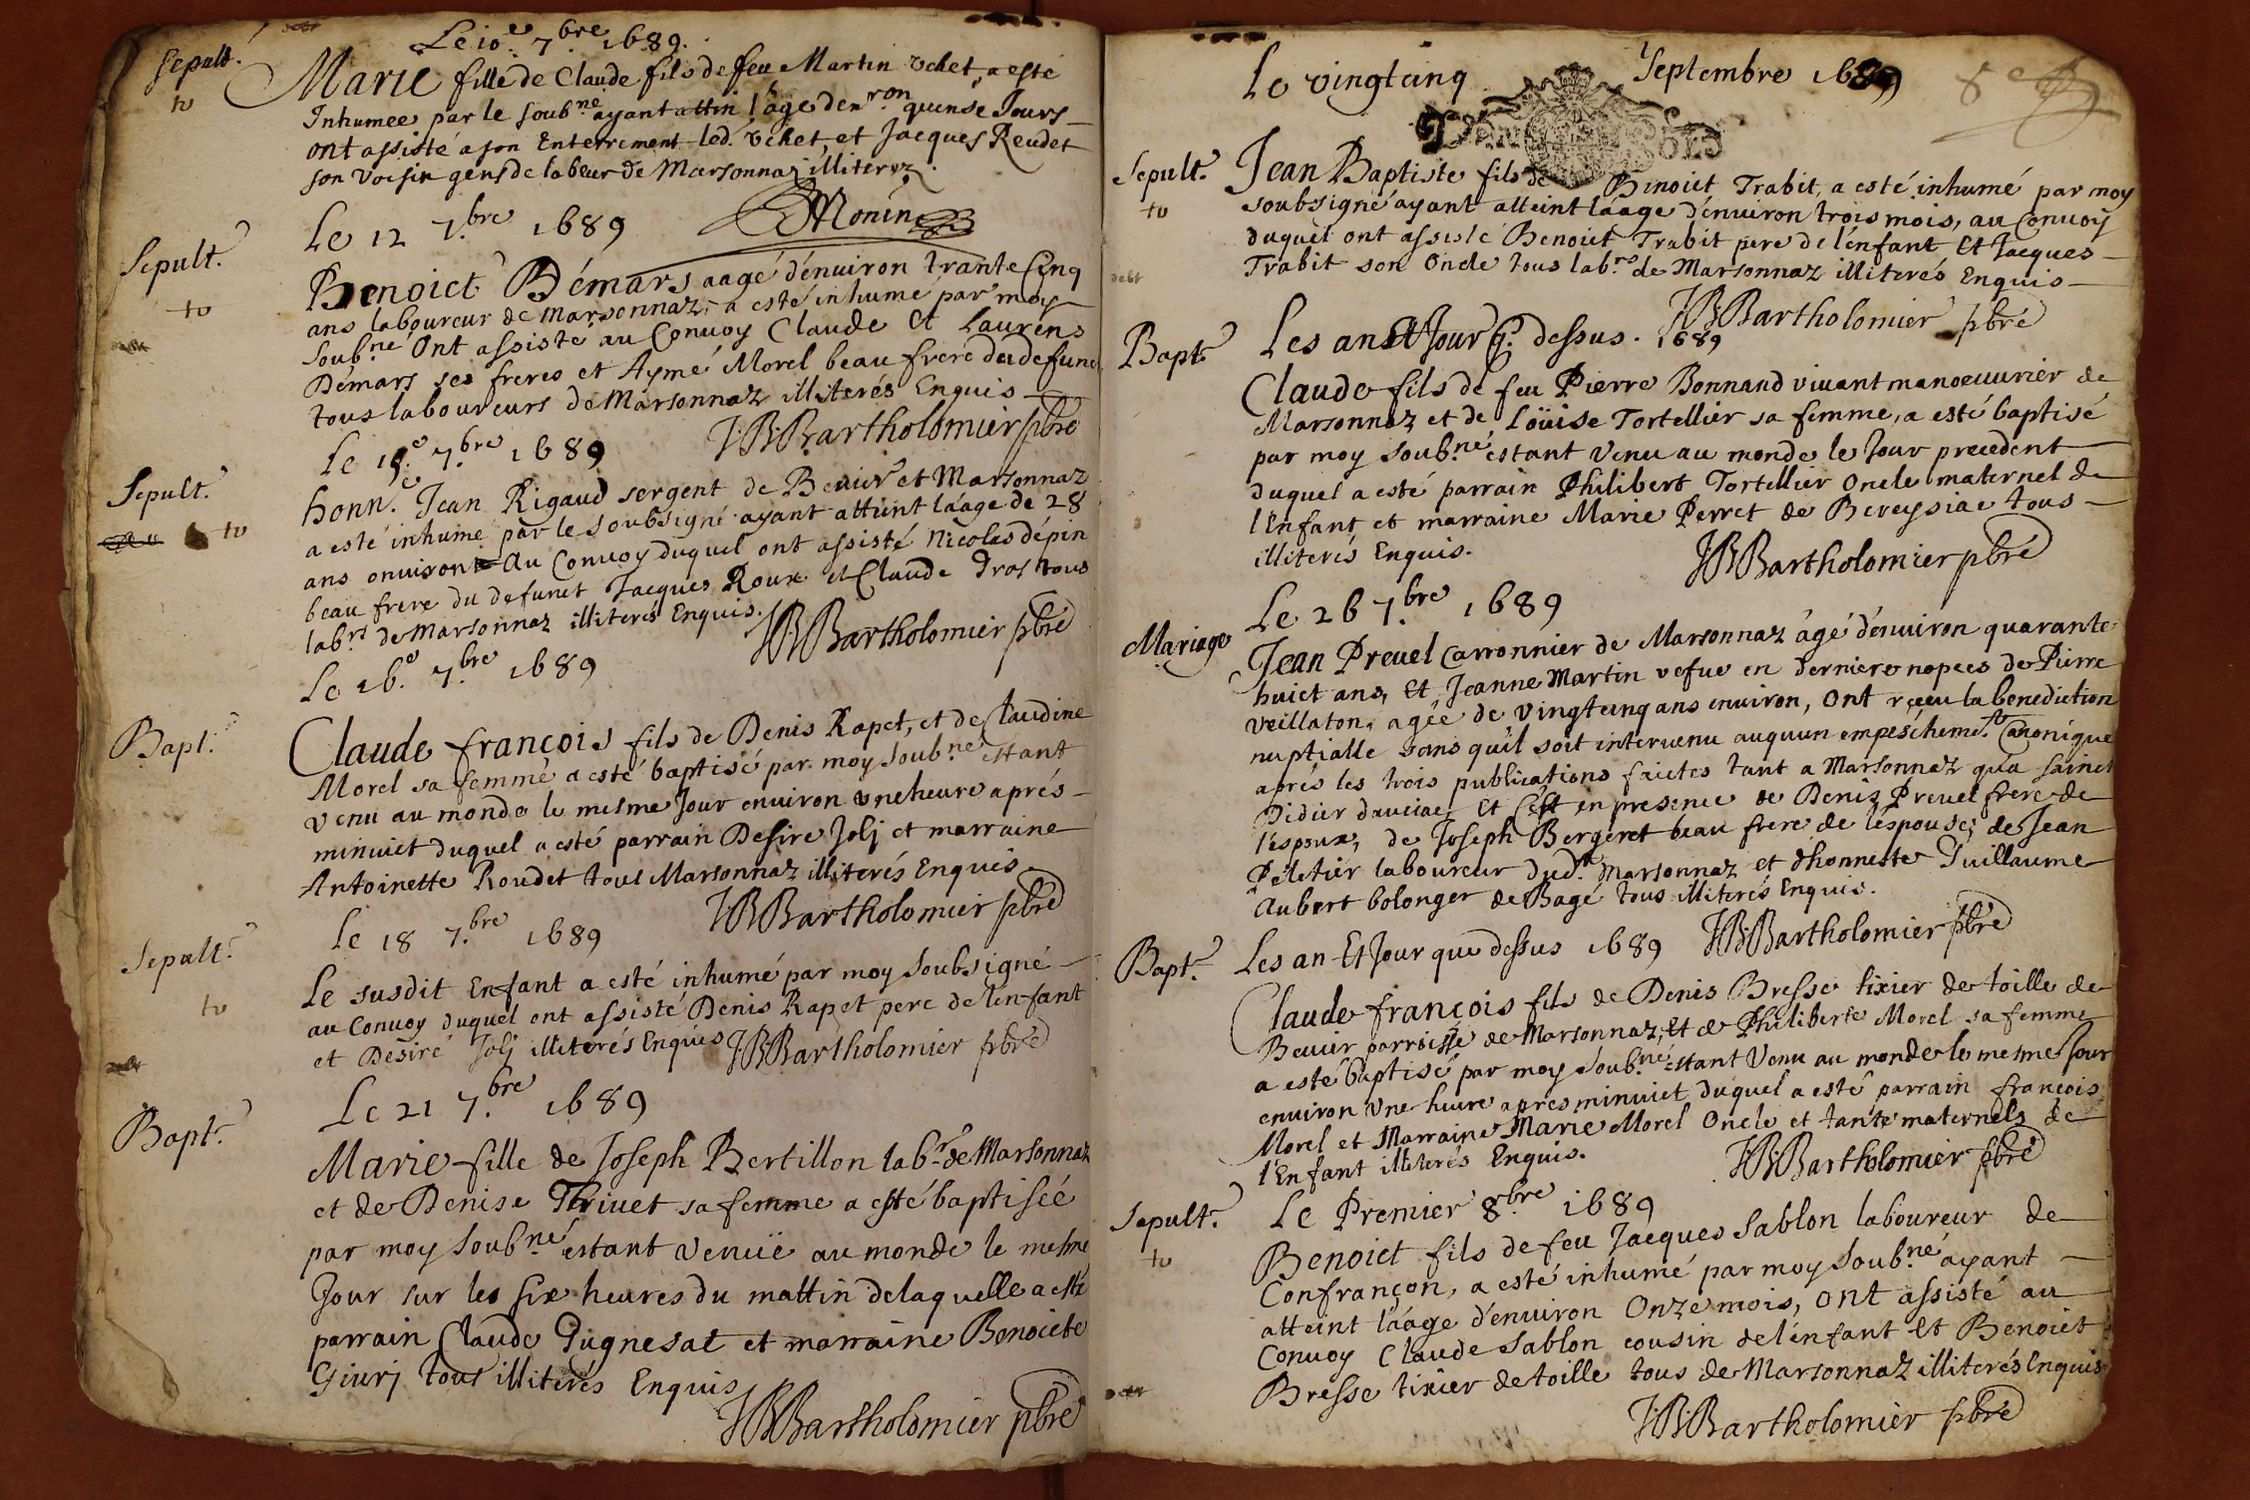 Le 10e 7.bre 1689.
Sepult.
Marie fille de Claude fils de feu Martin Vchet, a esté
to
Inhumee par le soub.ne ayant attin l'age denron quinse Jours
ont assisté a son Enterrement led. Vchet, et Jacques Reudet
son voisin gens de labeur de Marsonnaz illiterez.
Monin
Le 12 7.bre 1689
Sepult.
Benoict Démars aagé d'enuiron trante Cinq
to
ans laboureur de Marsonnaz, a esté inhumé par moy
soub.né Ont assisté au Conuoy Claude et Laurens
Démars ses freres et Aymé Morel beau frere du defunc
tous laboureurs de Marsonnaz illiterés Enquis
JBBartholomier pbré
Le 7.bre 1689
Sepult.
honn.e Jean Rigaud sergent de Beuier et Marsonnaz
to
a esté inhumé par le soubsigné ayant atteint l'aage de 28
ans enuiron Au Conuoy duquel ont assisté Nicolas dépin
beau frere du defunct Jacques Roux et Claude Dros tous
lab.rs de Marsonnaz illiterés Enquis.
JBBartholomier pbré
Le 16.e 7.bre 1689
Bapt.
Claude françois fils de Denis Rapet, et de Claudine
Morel sa femme a esté baptisé par moy soub.né estant
venu au monde le mesme Jour enuiron vne heure aprés
minuict duquel a esté parrain Desire Jolj et marraine
Antoinette Roudet tous Marsonnaz illiterés Enquis
JBBartholomier pbré
Le 18 7.bre 1689
Sepult.
Le susdit Enfant a esté inhumé par moy soubsigné
to
au Conuoy duquel ont assisté Denis Rapet pere de l'enfant
et Desiré Jolj illiterés Enquis JBBartholomier pbré
Le 21 7.bre 1689
Bapt.
Marie fille de Joseph Bertillon lab.r de Marsonnaz
et de Denise Thiuet sa femme a esté baptisée
par moy soub.né estant venüe au monde le mesme
Jour sur les six heures du mattin delaquelle a esté
parrain Claude Gugnesat et marraine Benoicte
Giurj tous illiterés Enquis
JBBartholomier pbré
Le vingtcinq Septembre 1689
8e
Sepult.
Jean Baptiste fils de Binoict Trabit, a esté inhumé par moy
to
soubsigné ayant atteint l'aage d'enuiron trois mois, au Conuoy
duquel ont assisté Benoict Trabit pere de l'enfant Et Jacques
Trabit son Oncle tous lab.rs de Marsonnaz illiterés Enquis
JBBartholomier pbré
Bapt.
Les an Et Jour q. dessus. 1689
Claude fils de feu Pierre Bonnand viuant manoeuurier de
Marsonnaz et de Loüise Tortellier sa femme, a esté baptisé
par moy soub.né estant venu au monde le Jour precedent
duquel a esté parrain Philibert Tortellier Oncle maternel de
l'Enfant et marraine Marie Perret de Bereysiac tous
illiterés Enquis.
JBBartholomier pbré
Le 26 7.bre 1689
Mariage
Jean Preuel Carronnier de Marsonnaz âgé d'enuiron quarante
huict ans, Et Jeanne Martin vefue en derniere nopces de Pierre
Veillaton, agée de vingtcinq ans enuiron, Ont reçeu la benediction
nuptialle sans qu'il soit interuenu auquun empeschemt. Canonique
aprés les trois publications faictes tant a Marsonnaz qu'a sainct
Didier dauciac Et C'est en presence de Denis Preuel frere de
l'espoux, de Joseph Bergeret beau frere de l'espouse; de Jean
Peletier laboureur dud.t Marsonnaz et d'honneste Guillaume
Aubert bolonger de Bagé tous illiterés Enquis.
JBBartholomier pbré
Bapt.
Les an Et Jour que dessus 1689
Claude françois fils de Denis Bresse tixier de toille de
Beuier parroisse de Marsonnaz, Et de Philiberte Morel sa femme
a esté baptisé par moy soub.né estant Venu au monde le mesme Jour
enuiron vne heure apres minuict duquel a esté parrain françois
Morel et Marraine Marie Morel Oncle et tante maternels de
l'Enfant illiterés Enquis.
JBBartholomier pbré
Le Premier 8.bre 1689
Sepult.
Benoict fils de feu Jacques Sablon laboureur de
to
Confrançon, a esté inhumé par moy soub.né ayant
atteint l'aage d'enuiron Onze mois, Ont assisté au
Conuoy Claude Sablon cousin de l'enfant Et Benoict
Bresse tixier de toille tous de Marsonnaz illiterés Enquis
JBBartholomier pbré